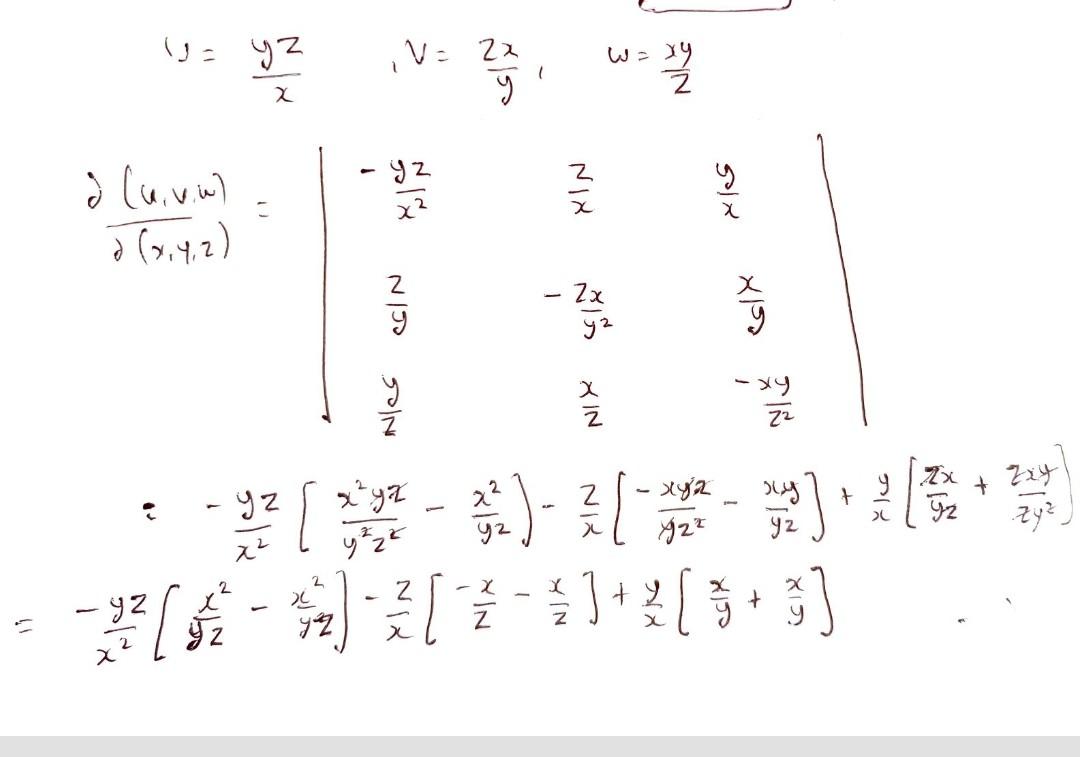 u = yz/x , V = zx/y , w = xy/z
∂(u,v,w)/∂(x,y,z) = | -yz/x² z/x y/x |
| z/y -zx/y² x/y |
| y/z x/z -xy/z² |
= -yz/x² [ x²yz/y²z² - x²/yz ] - z/x [ -xyz/yz² - xy/yz ] + y/x [ zx/yz + zxy/zy² ]
= -yz/x² [ x²/yz - x²/yz ] - z/x [ -x/z - x/z ] + y/x [ x/y + x/y ]